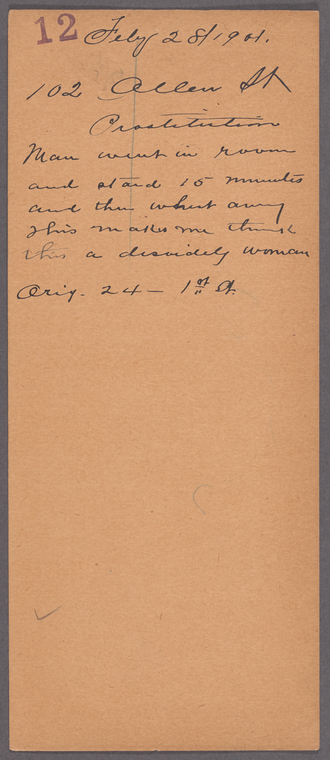 12 Feby 28/1901.
102 Allen St
Prostitution
Man went in room
and staid 15 minutes
and then whent away
this makes me think
this a disvidely woman
Orig. 24 - 1st St.